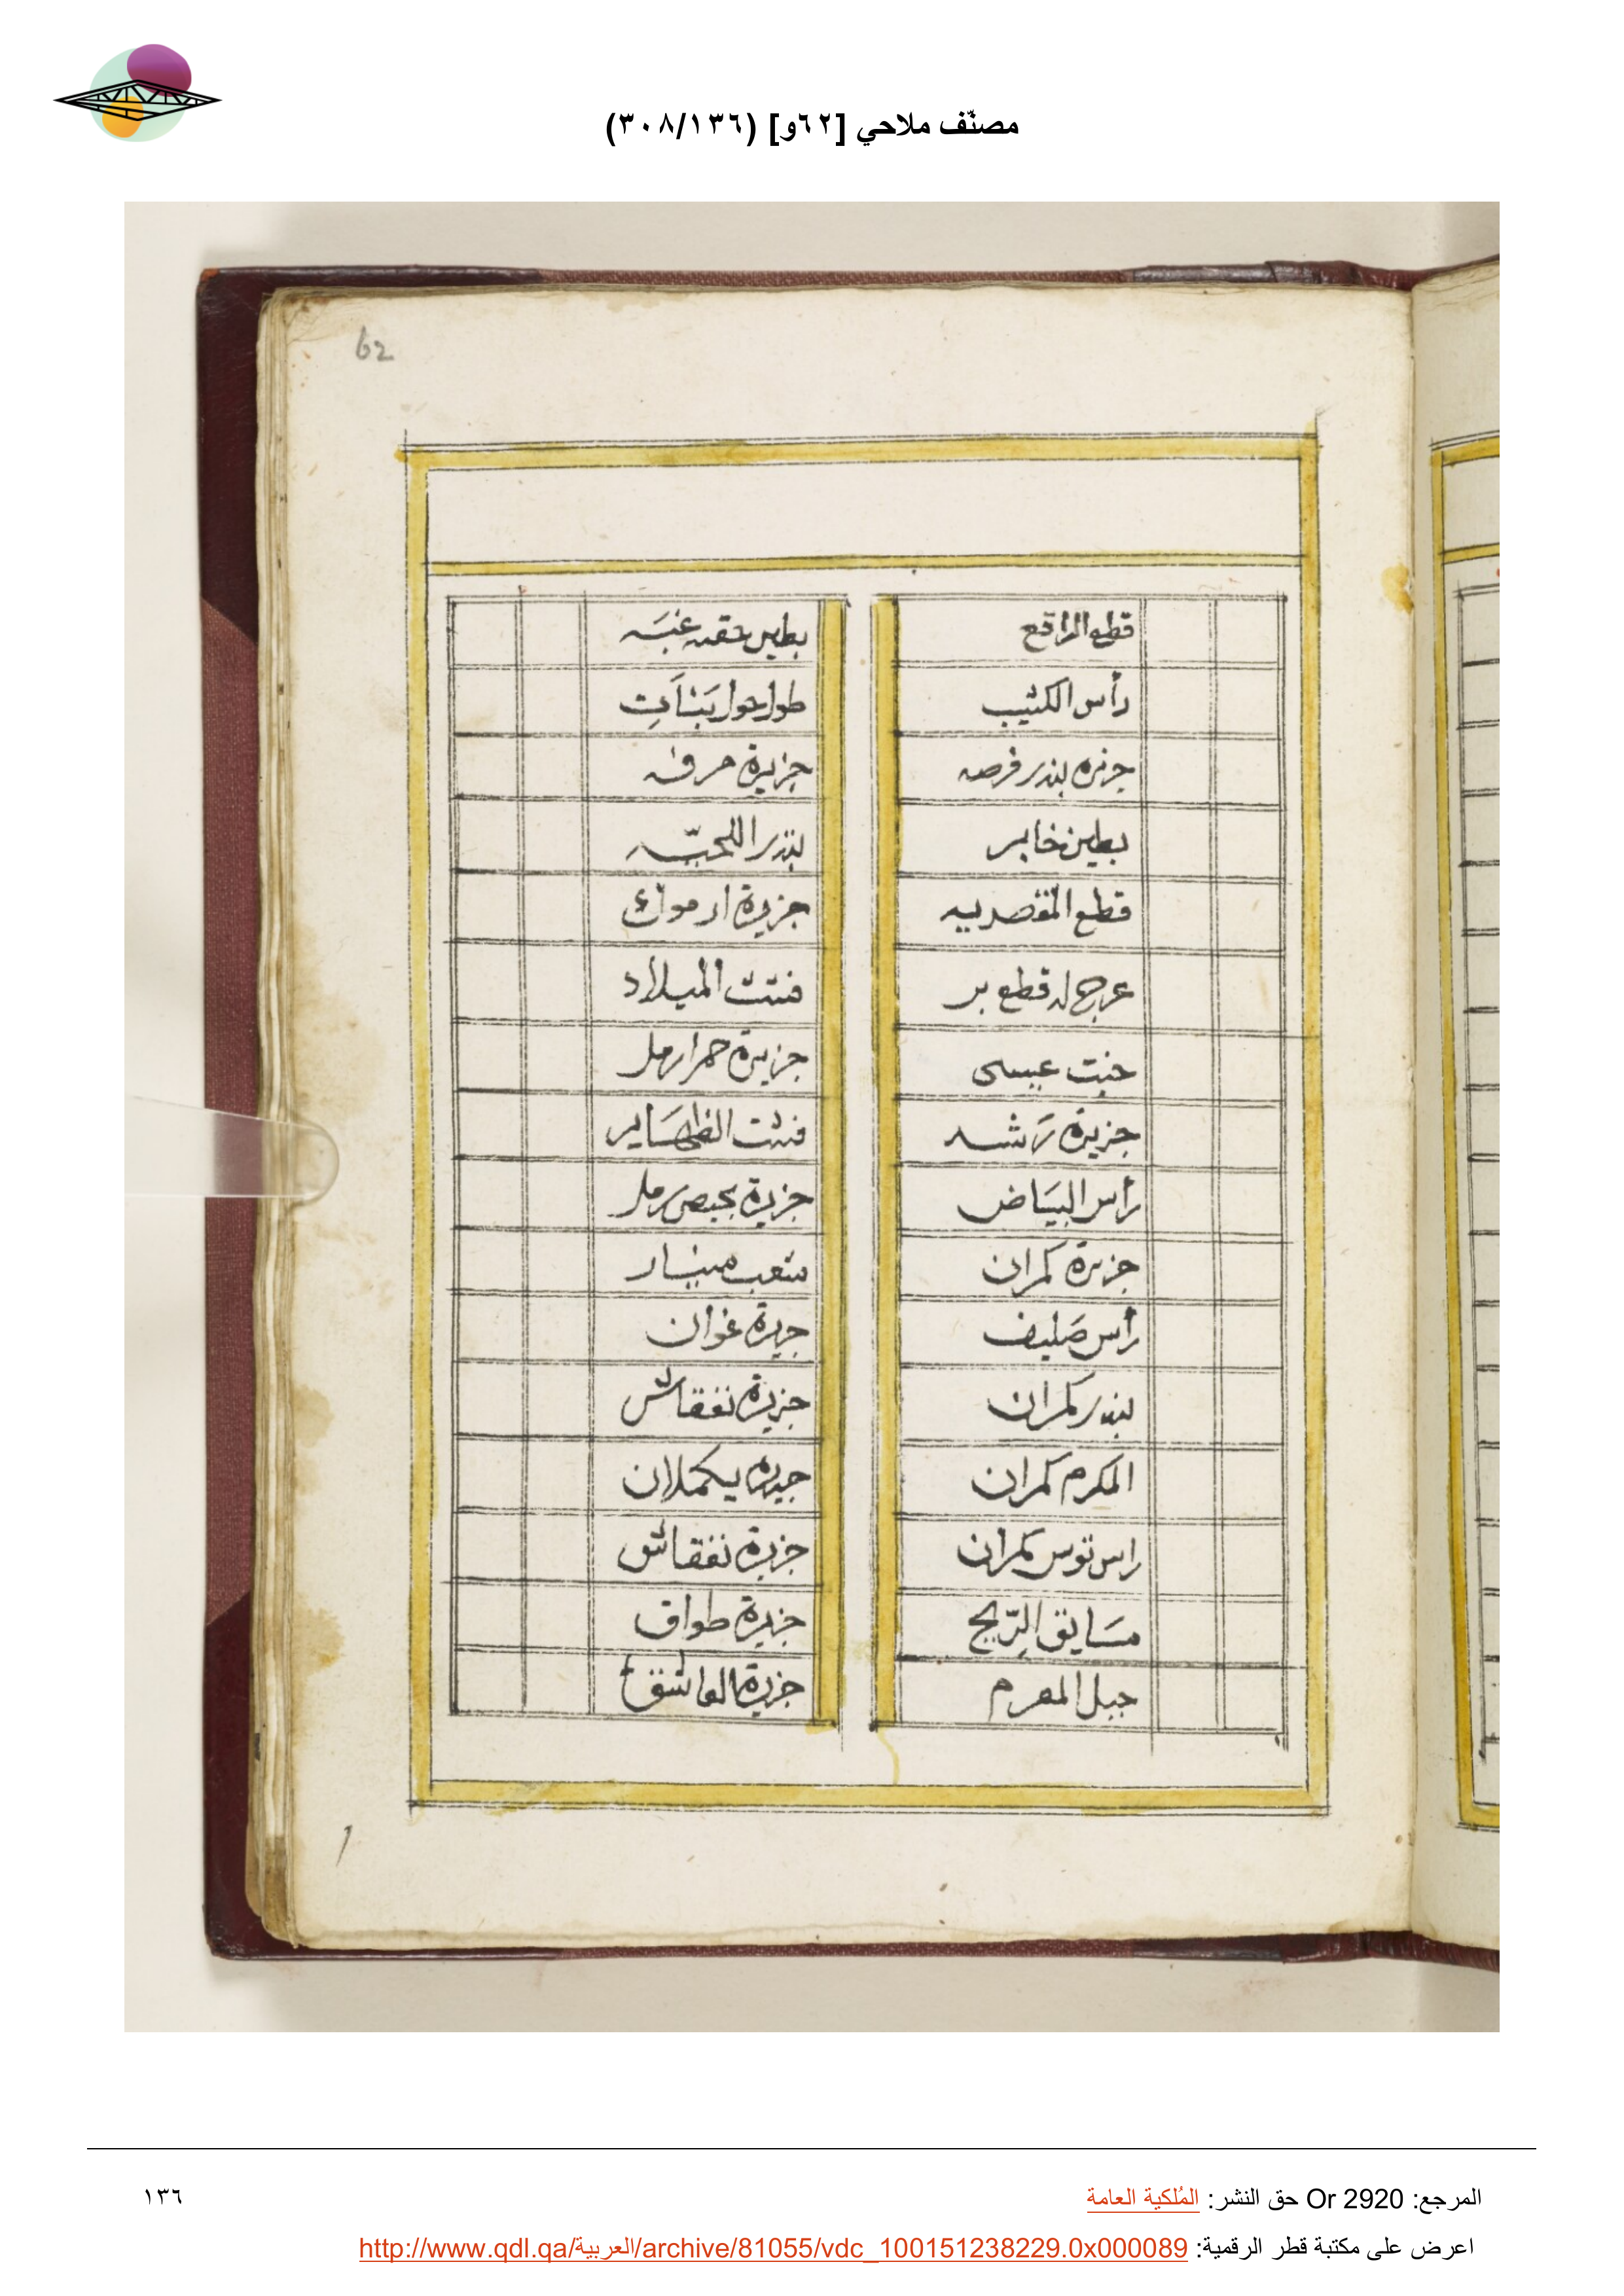 مصنّف ملاحي [٦٢و] (٣٠٨/١٣٦)
62
قطع الراقع
رأس الكثيب
جزيره بندر فرصه
بطين خابر
قطع المقصريه
عرج له قطع بر
خبت عيسى
جزيرة رَشد
رأس البيَاض
جزيرة كمران
رأس صَليف
بندر كمران
المكرم كمران
راس نوس كمران
مسَايق الرّيح
جبل المحرم
بطين حقنه عنبَه
طول حول بَنَات
جزيرة حرف
بندر اللحيّه
جزيرة ارموك
فشت الميلاد
جزيرة حمرا رمل
فشت الظهَاير
جزيرة بحيص رمل
شعب مينار
جزيرة غوان
جزيرة نفقاش
جزيره يكملان
جزيرة نفقاش
جزيرة طواق
جزيرة العاشق
المرجع: Or 2920 حق النشر: المُلكية العامة
١٣٦
اعرض على مكتبة قطر الرقمية: http://www.qdl.qa/العربية/archive/81055/vdc_100151238229.0x000089